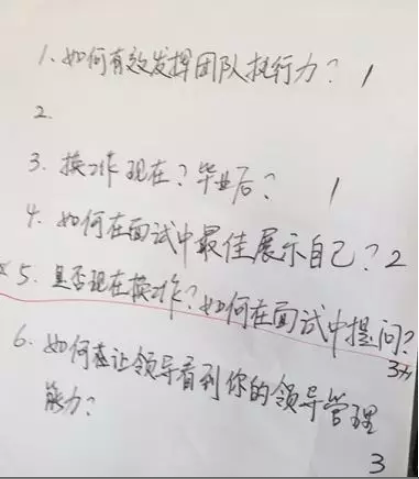 1. 如何有效发挥团队执行力? 1
2.
3. 换工作现在? 毕业后? 1
4. 如何在面试中最佳展示自己? 2
5. 是否现在换工作? 如何在面试中提问?
3
6. 如何让领导看到你的领导管理
能力?
3